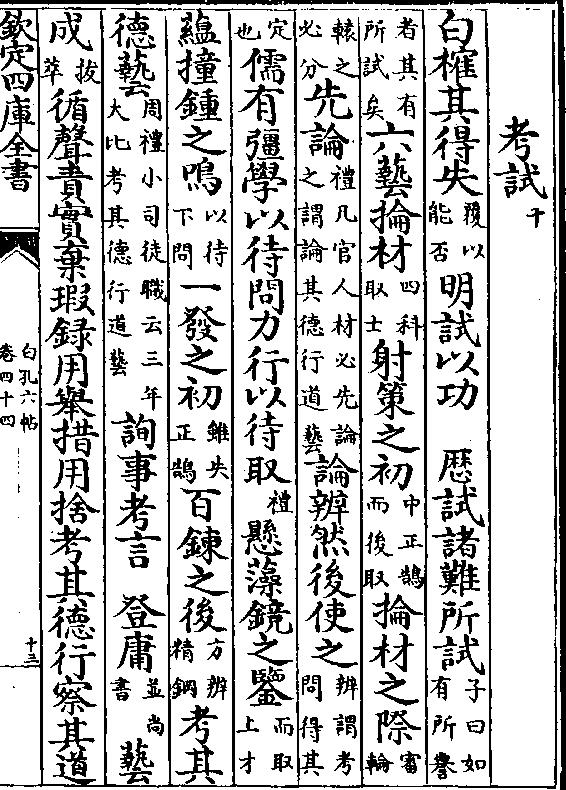 考試十
白榷其得失覆以能否明試以功 歷試諸難所試子曰如有所譽
者其有所試矣六藝掄材四科取士射策之初中正鵠而後取掄材之際審輪
轅之必分先論禮凡官人材必先論之謂論其德行道藝論辨然後使之辨謂考問得其
定也儒有彊學以待問力行以待取禮懸藻鏡之鑒而取上才
藴撞鍾之鳴以待下問一發之初雖失正鵠百鍊之後方辨精鋼考其
德藝周禮小司徒職云三年大比考其德行道藝詢事考言 登庸並尚書藝
成拔萃循聲責實棄瑕録用舉措用捨考其德行察其道
欽定四庫全書
白孔六帖
卷四十四
十三